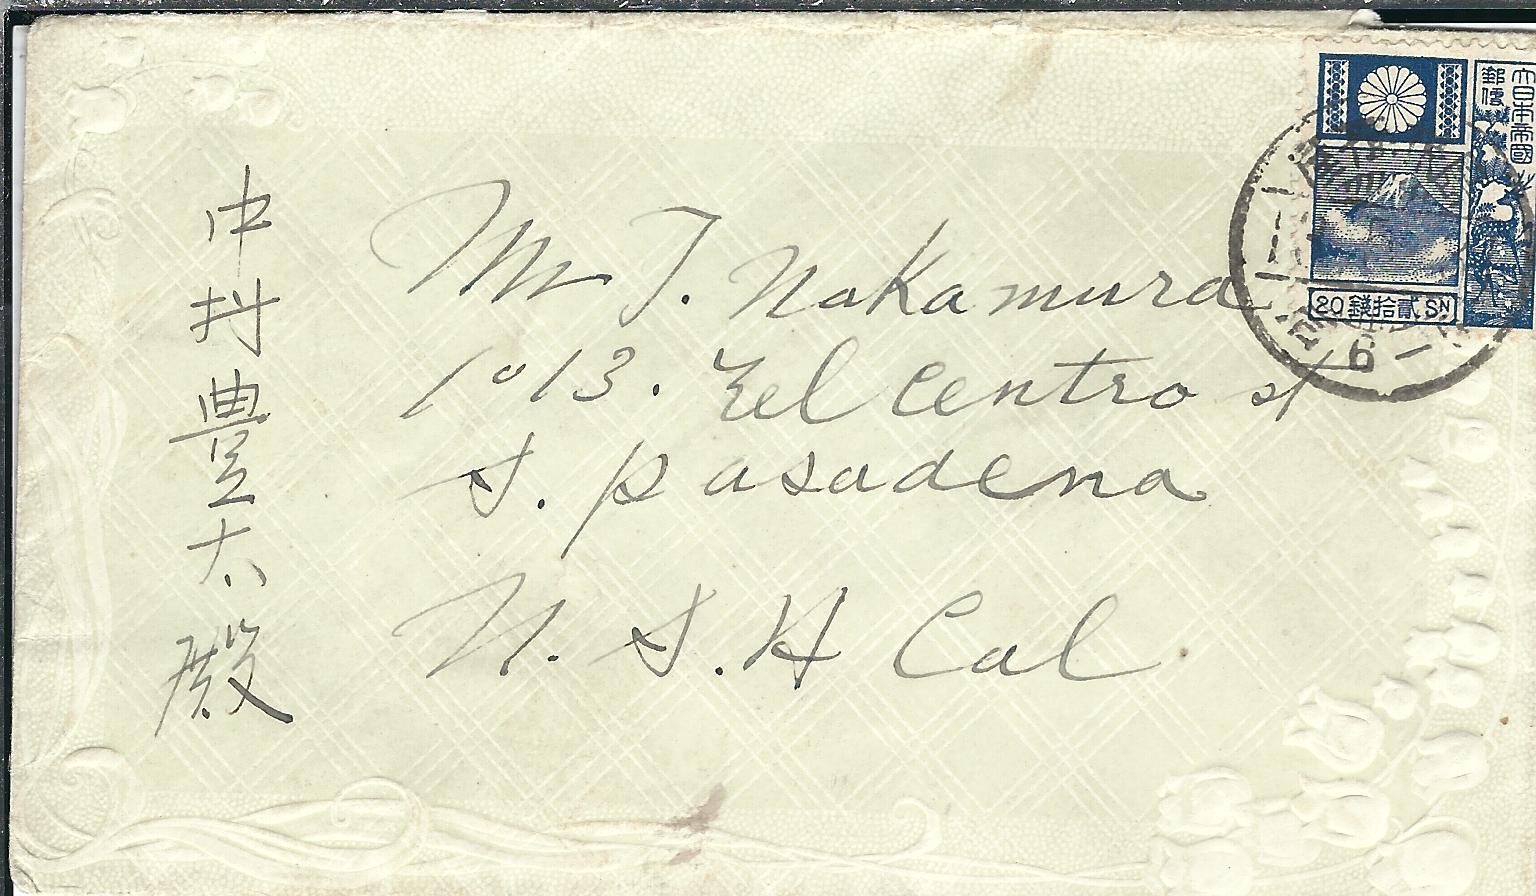 中村豊太殿
Mr T. Nakamura
1013. El Centro st
S. Pasadena
U. S. A Cal.
大日本帝國
郵便
20 錢拾貳 SN
6